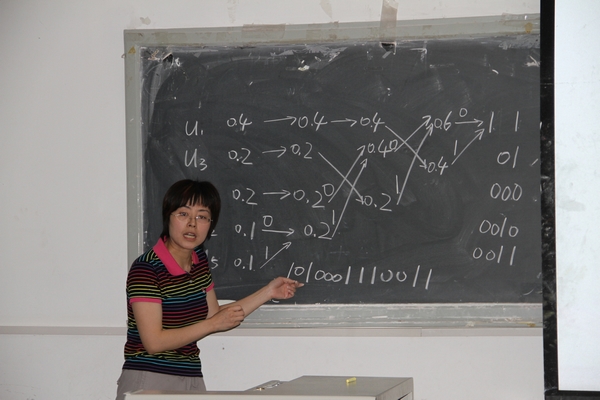 U₁ 0.4 → 0.4 → 0.4 0.6 0 → 1 1
U₃ 0.2 → 0.2 0.4 0 0.4 1 01
0.2 → 0.2 0 0.2 1 000
0.1 0 → 0.2 1 0010
5 0.1 1 0011
10100011110011